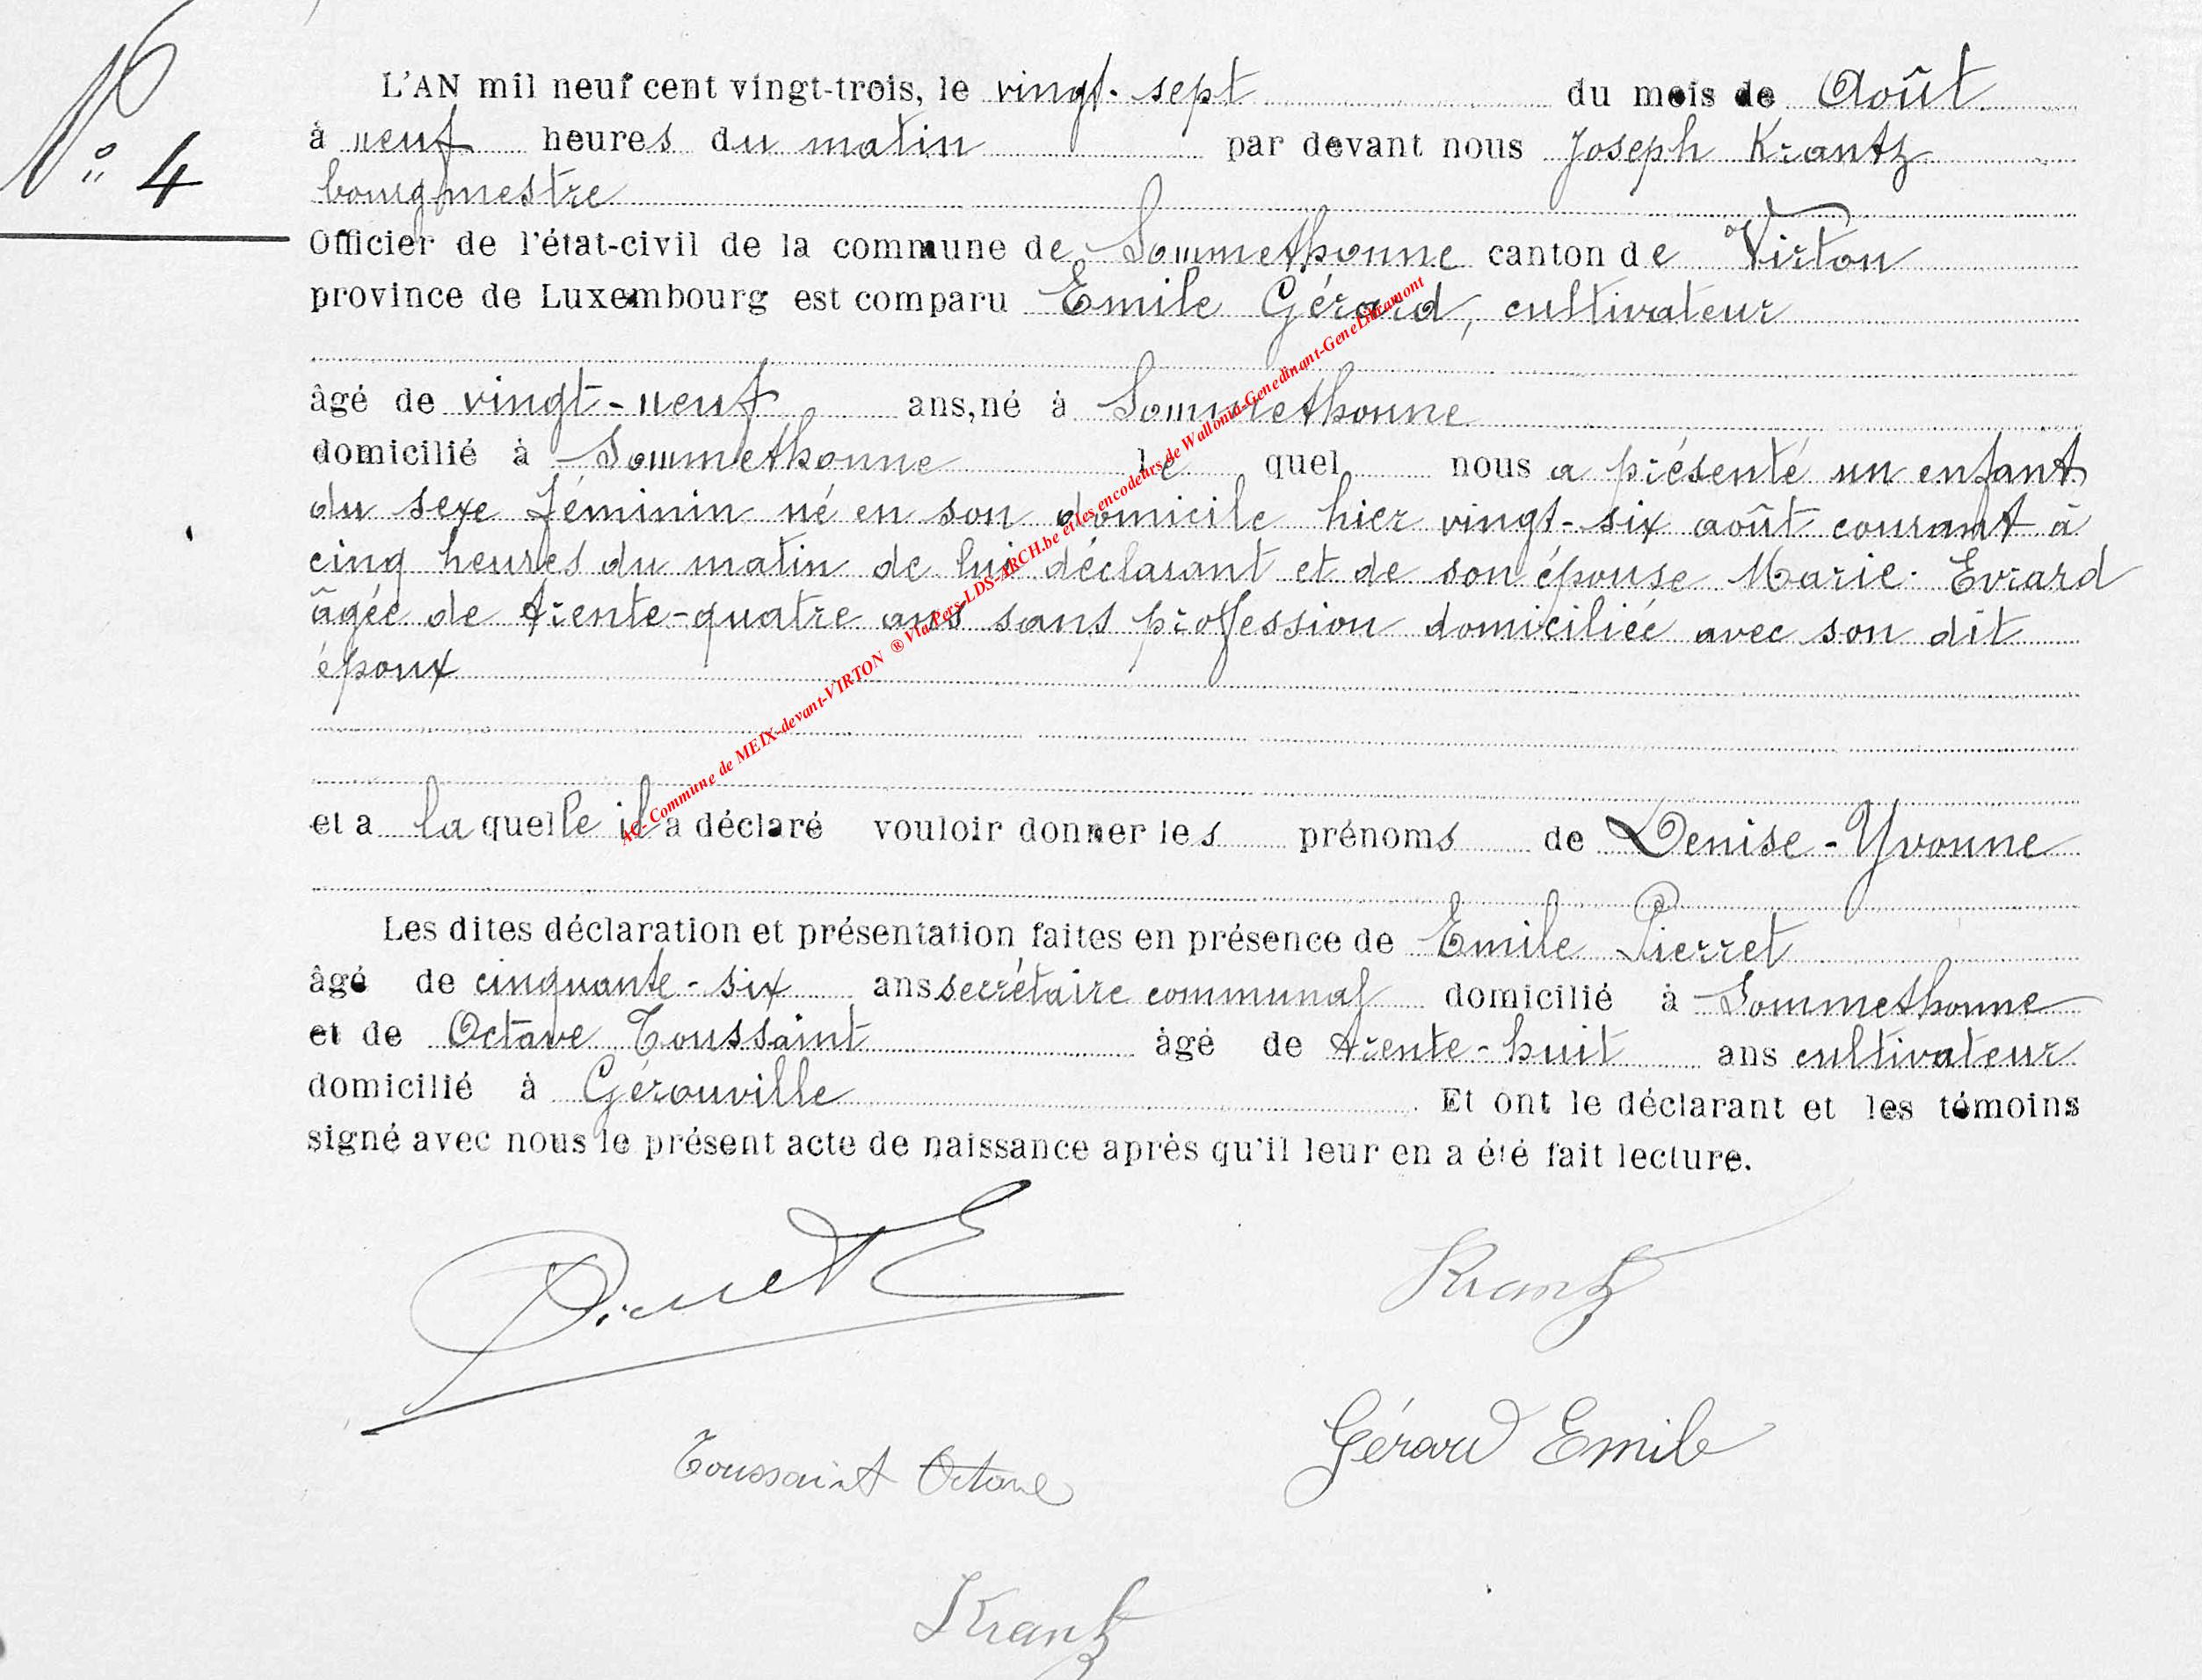 N° 4
L'AN mil neuf cent vingt-trois, le vingt-sept du mois de Août
à neuf heures du matin par devant nous Joseph Krantz
bourgmestre
Officier de l'état-civil de la commune de Sommethonne canton de Virton
province de Luxembourg est comparu Emile Gérard, cultivateur
âgé de vingt-neuf ans, né à Sommethonne
domicilié à Sommethonne le quel nous a présenté un enfant
du sexe féminin né en son domicile hier vingt-six août courant à
cinq heures du matin de lui déclarant et de son épouse Marie Evrard
âgée de trente-quatre ans sans proffession domiciliée avec son dit
époux
et a laquelle il a déclaré vouloir donner les prénoms de Denise-Yvonne
Les dites déclaration et présentation faites en présence de Emile Pierret
âgé de cinquante-six ans secrétaire communal domicilié à Sommethonne
et de Octave Toussaint âgé de trente-huit ans cultivateur
domicilié à Gérouville Et ont le déclarant et les témoins
signé avec nous le présent acte de naissance après qu'il leur en a été fait lecture.
Pierret E
Krantz
Gérard Emile
Toussaint Octave
Krantz
AC-Commune de MEIX-devant-VIRTON ® Via Pers-LDS-ARCH.be et les encodeurs de Wallonia-Genedinant-GeneLibramont